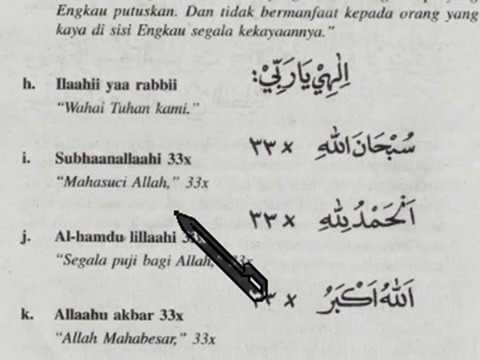 Engkau putuskan. Dan tidak bermanfaat kepada orang yang
kaya di sisi Engkau segala kekayaannya.”
h. Ilaahii yaa rabbii اِلٰهِيْ يَا رَبِّيْ:
“Wahai Tuhan kami.”
سُبْحَانَ اللهِ × ٣٣
i. Subhaanallaahi 33x
“Mahasuci Allah,” 33x
اَلْحَمْدُ لِلهِ × ٣٣
j. Al-hamdu lillaahi 33x
“Segala puji bagi Allah,” 33x
اَللهُ اَكْبَرُ × ٣٣
k. Allaahu akbar 33x
“Allah Mahabesar,” 33x